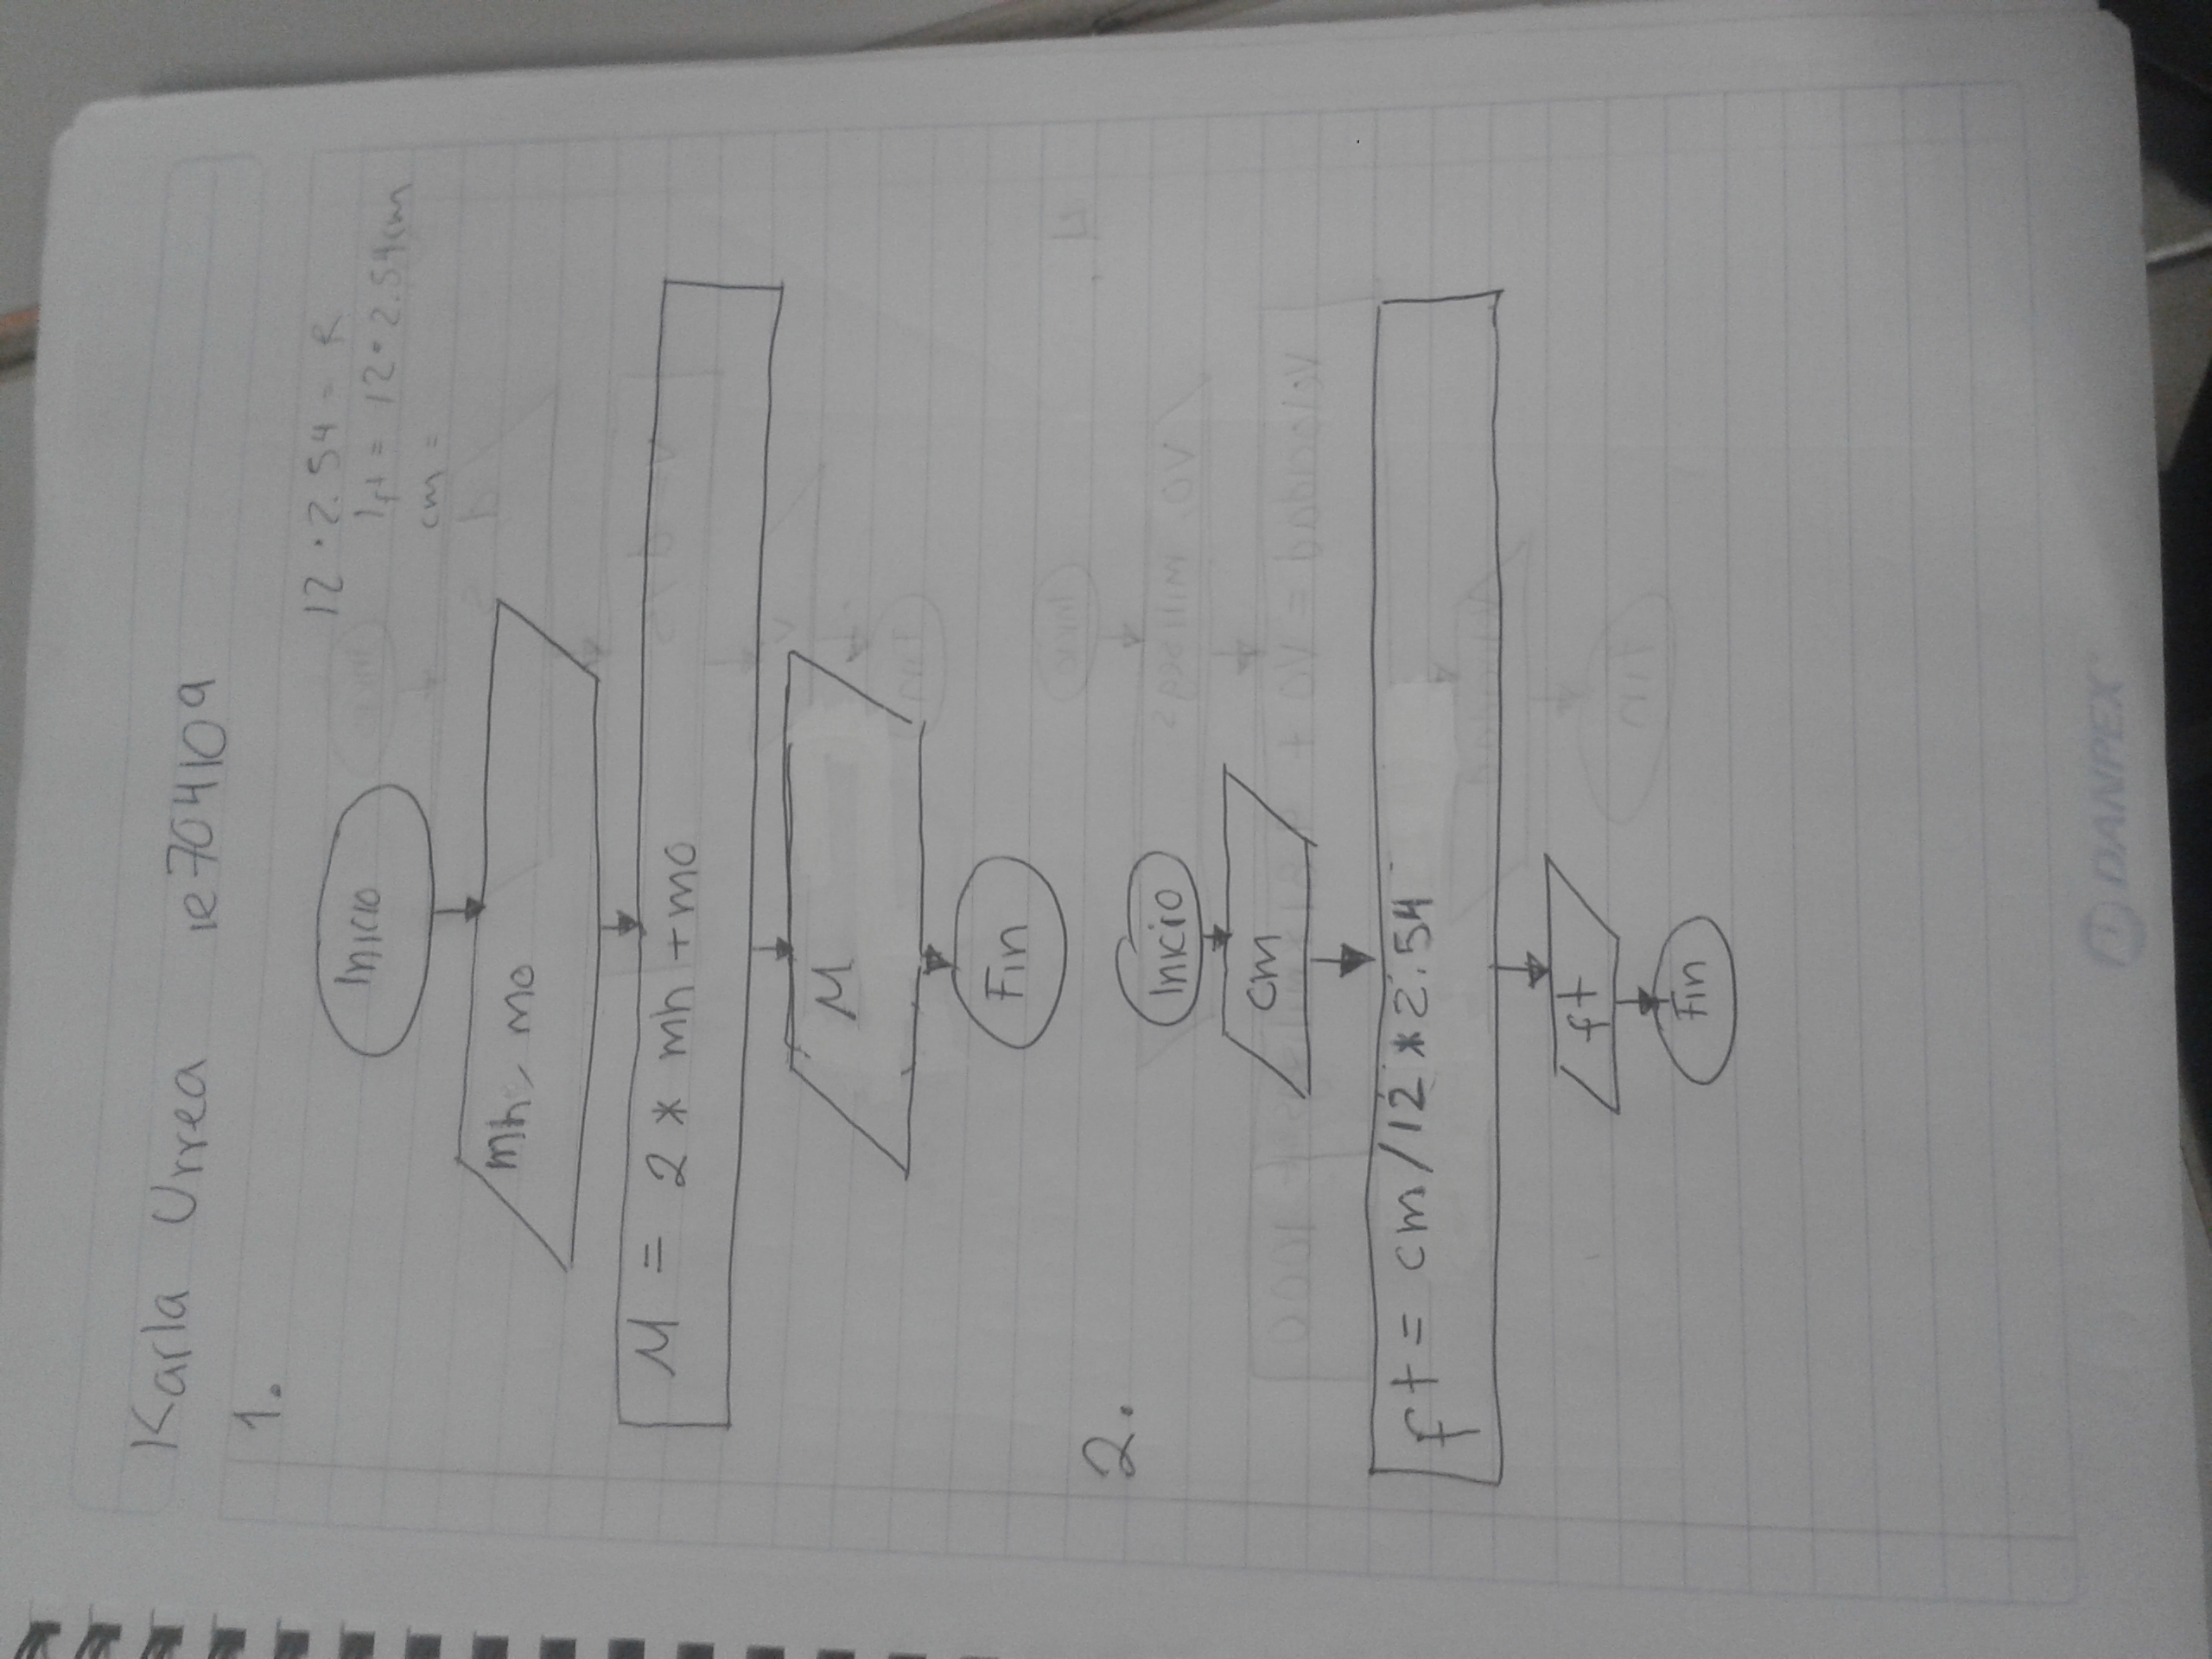 Karla Urrea ie704109
1.
12 · 2.54 = R
1ft = 12 · 2.54cm
cm =
Inicio
mh, mo
M = 2 * mh + mo
M
Fin
2.
Inicio
cm
ft = cm/12 * 2.54
ft
Fin
DANPEX